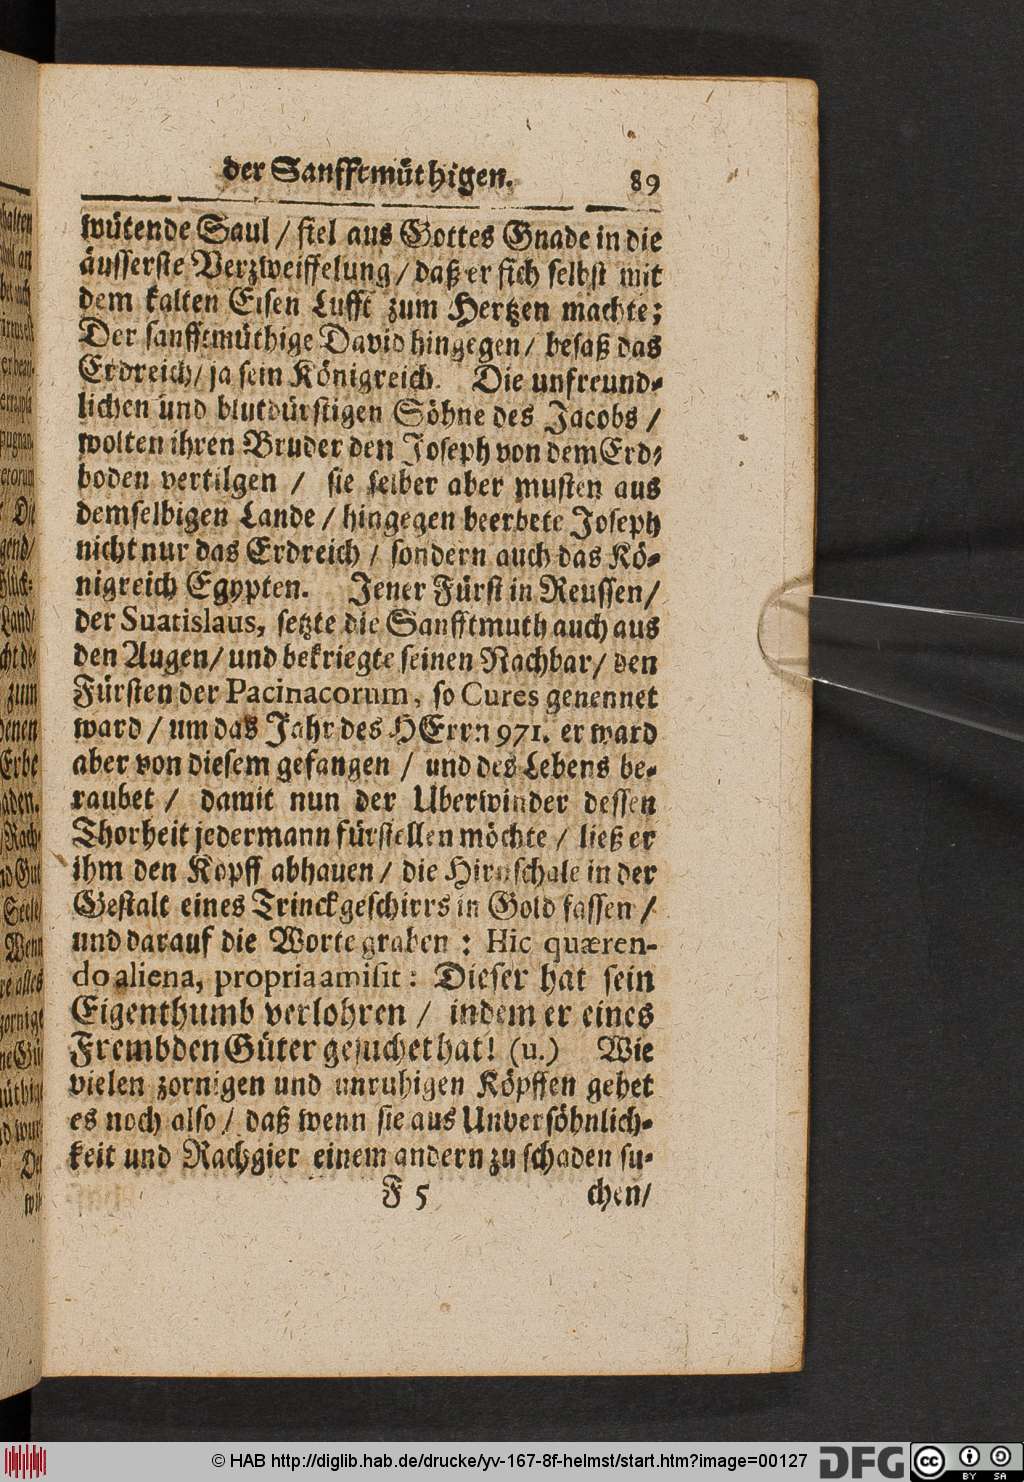 der Sanfftmüthigen. 89
wütende Saul / fiel aus Gottes Gnade in die
äusserste Verzweiffelung / daß er sich selbst mit
dem kalten Eisen Lufft zum Hertzen machte;
Der sanfftmüthige David hingegen / besaß das
Erdreich / ja sein Königreich. Die unfreund-
lichen und blutdürstigen Söhne des Jacobs /
wolten ihren Bruder den Joseph von dem Erd-
boden vertilgen / sie selber aber musten aus
demselbigen Lande / hingegen beerbete Joseph
nicht nur das Erdreich / sondern auch das Kö-
nigreich Egypten. Jener Fürst in Reussen /
der Suatislaus, setzte die Sanfftmuth auch aus
den Augen / und bekriegte seinen Nachbar / den
Fürsten der Pacinacorum, so Cures genennet
ward / um das Jahr des HErrn 971. er ward
aber von diesem gefangen / und des Lebens be-
raubet / damit nun der Uberwinder dessen
Thorheit jedermann fürstellen möchte / ließ er
ihm den Kopff abhauen / die Hirnschale in der
Gestalt eines Trinckgeschirrs in Gold fassen /
und darauf die Worte graben : Hic quæren-
do aliena, propria amisit : Dieser hat sein
Eigenthumb verlohren / indem er eines
Frembden Güter gesuchet hat! (u.) Wie
vielen zornigen und unruhigen Köpffen gehet
es noch also / daß wenn sie aus Unversöhnlich-
keit und Rachgier einem andern zu schaden su-
F 5 chen /
© HAB http://diglib.hab.de/drucke/yv-167-8f-helmst/start.htm?image=00127 DFG cc BY SA